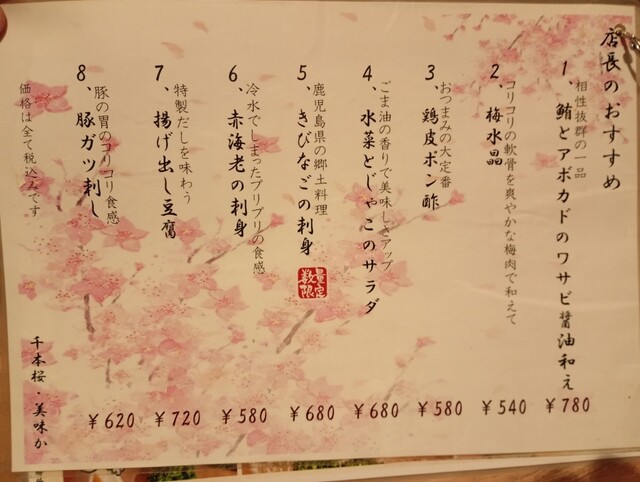 店長のおすすめ
1、鮪とアボカドのワサビ醤油和え
相性抜群の一品
¥780
2、梅水晶
コリコリの軟骨を爽やかな梅肉で和えて
¥540
3、鶏皮ポン酢
おつまみの大定番
¥580
4、水菜とじゃこのサラダ
ごま油の香りで美味しさアップ
¥680
5、きびなごの刺身
数量限定
鹿児島県の郷土料理
¥680
6、赤海老の刺身
冷水でしまったプリプリの食感
¥580
7、揚げ出し豆腐
特製だしを味わう
¥720
8、豚ガツ刺し
豚の胃のコリコリ食感
¥620
価格は全て税込みです
千本桜・美味か